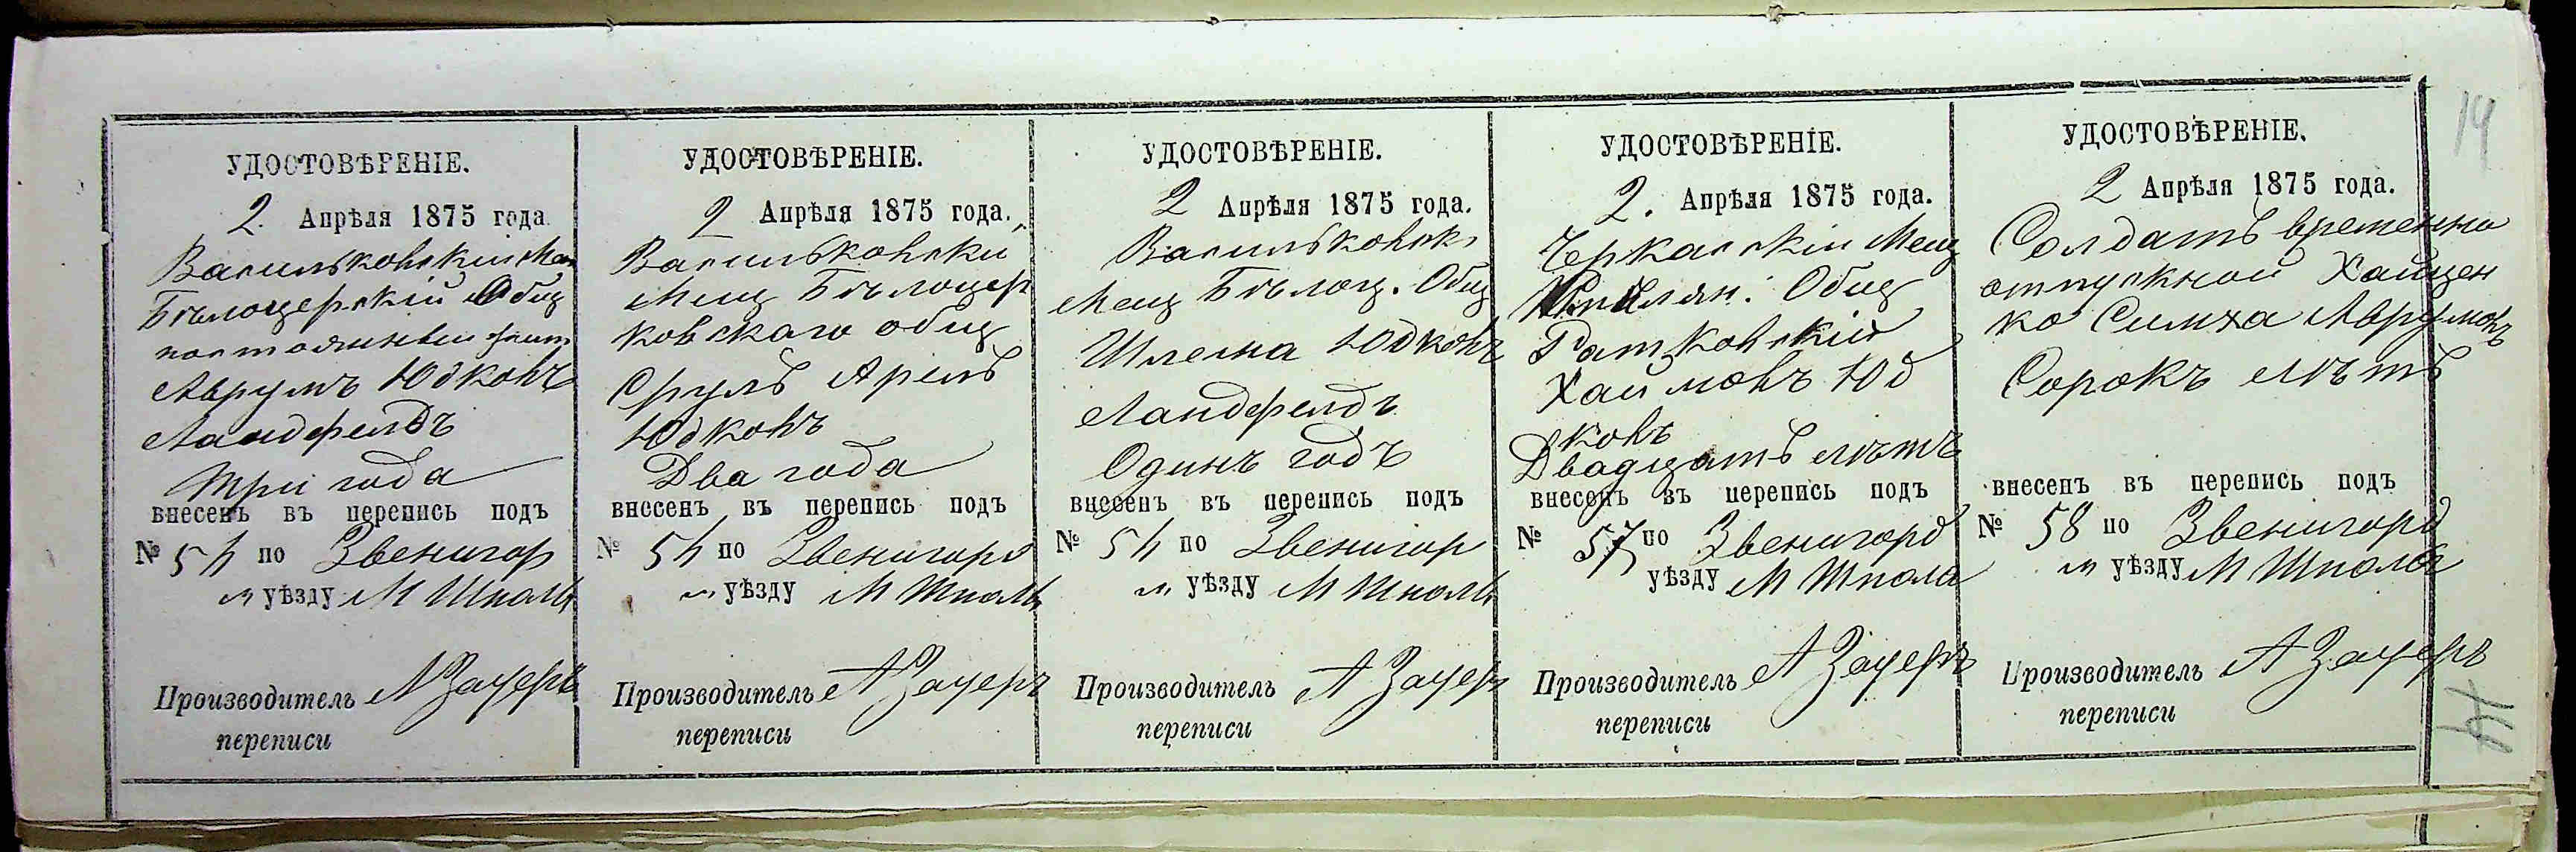 УДОСТОВѢРЕНІЕ.
2. Апрѣля 1875 года.
Васильковскій Мещ
Бѣлоцерскій Общ
Аврумъ Юдковъ
Ландфельдъ
Три года
внесенъ въ перепись подъ
№ 54 по Звенигор
м уѣзду М Шпола
Производитель А Зауеръ
переписи
УДОСТОВѢРЕНІЕ.
2 Апрѣля 1875 года.
Васильковски
Мещ Бѣлоцер
ковскаго общ
Сруль Арель
Юдковъ
Два года
внесенъ въ перепись подъ
№ 54 по Звенигоро
м уѣзду М Шпола
Производитель А Зауеръ
переписи
УДОСТОВѢРЕНІЕ.
2 Апрѣля 1875 года.
Васильковск
Мещ Бѣлоц. Общ
Шлема Юдковъ
Ландфелдъ
Одинъ годъ
внесенъ въ перепись подъ
№ 54 по Звенигор
м уѣзду М Шпола
Производитель А Зауеръ
переписи
УДОСТОВѢРЕНІЕ.
2. Апрѣля 1875 года.
Черкаскій Мещ
Общ
Ратковскій
Хаимовъ Юд
ковъ
Двадцать лѣтъ
внесенъ въ перепись подъ
№ 57 по Звенигорд
уѣзду М Шпола
Производитель А Зауеръ
переписи
УДОСТОВѢРЕНІЕ.
2 Апрѣля 1875 года.
Солдатъ временно
отпускной Хаищен
ко Симха Аврумовъ
Сорокъ лѣтъ
внесенъ въ перепись подъ
№ 58 по Звенигорд
м уѣзду М Шпола
Производитель А Зауеръ
переписи
14